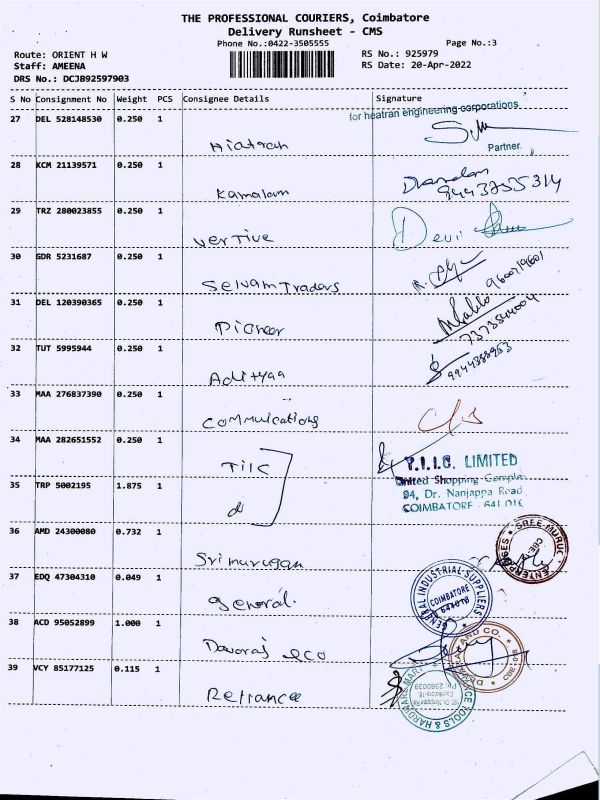 THE PROFESSIONAL COURIERS, Coimbatore
Delivery Runsheet - CMS
Phone No.:0422-3505555 Page No.:3
Route: ORIENT H W RS No.: 925979
Staff: AMEENA RS Date: 20-Apr-2022
DRS No.: DCJB92597903
S No Consignment No Weight PCS Consignee Details Signature
27 DEL 528148530 0.250 1
for heatran engineering corporations
Partner
28 KCM 21139571 0.250 1 Kamalam
29 TRZ 280023855 0.250 1 Vertive Devi
30 GDR 5231687 0.250 1 Selvam Traders
31 DEL 120390365 0.250 1 Pioneer
7373544004
32 TUT 5995944 0.250 1 Adityaa
9944388953
33 MAA 276837390 0.250 1 Commuications
34 MAA 282651552 0.250 1 TIIC
T.I.I.C. LIMITED
United Shopping Complex
94, Dr. Nanjappa Road
COIMBATORE - 641 018
35 TRP 5002195 1.875 1 d
36 AMD 24300080 0.732 1 Srimurugan
SREE MURUGAN ENTERPRISES
37 EDQ 47304310 0.049 1 general.
GENERAL INDUSTRIAL SUPPLIERS
COIMBATORE
641018
38 ACD 95052899 1.000 1 Davaraj eco
39 VCY 85177125 0.115 1 Reliance
TOOLS & HARDWARE MART